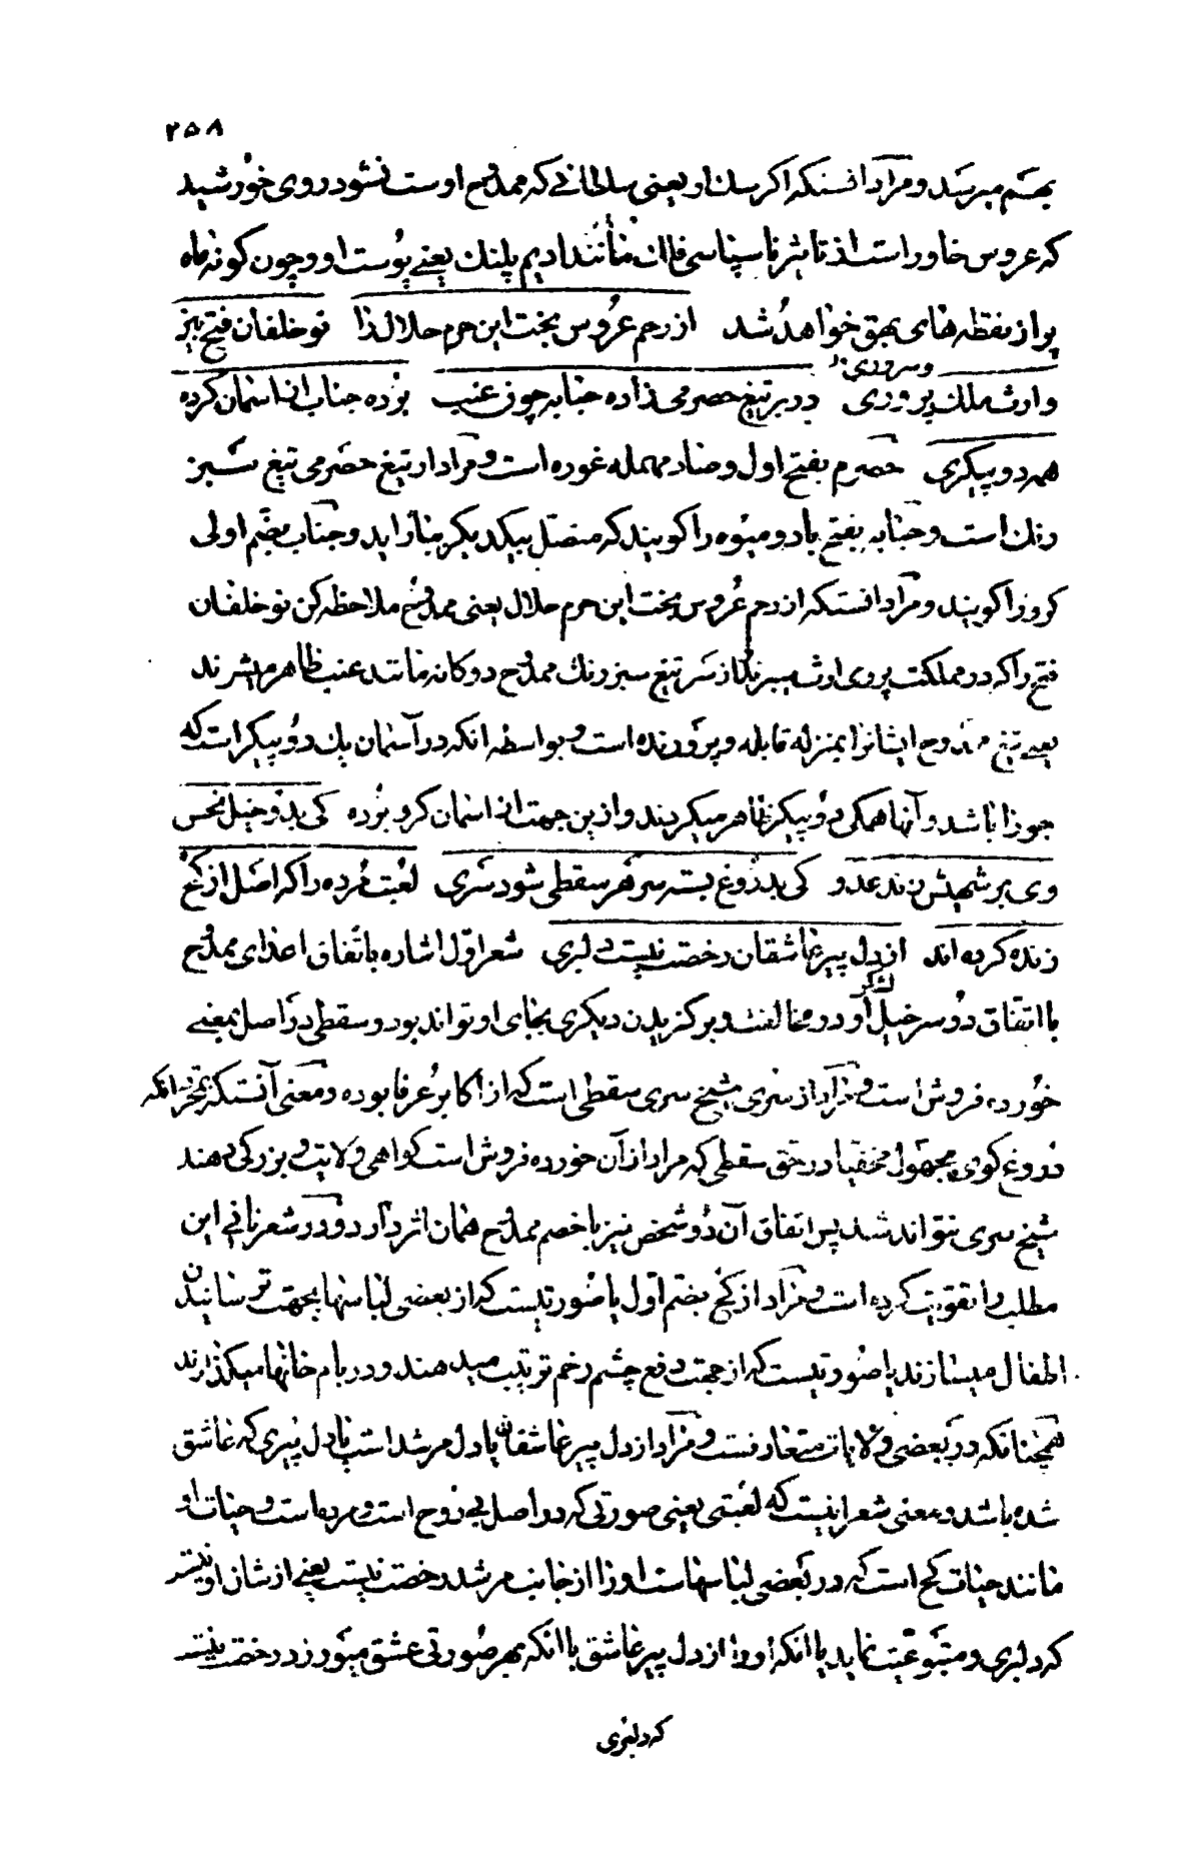 ٢٥٨
بهم میرسد و مراد آنستکه اکر سان او یعنی سلطانی که ممدوح اوست نشود روی خورشید
که عروس خاور است از تاثیر ناسپاسی فلان مانند ادیم پلنك یعنی پوست او و چون کونه ماه
پر از نقطه های بهق خواهد شد از رحم عروس بخت این حرم حلال زا نو خلفان فتح بین
وارث ملك پروری و سروری در بر تیغ حصرمی زاده جنابه چون عنب بوده جناب از آسمان کرده
همه دو پیکری حصرم بفتح اول و صاد مهمله غوره است و مراد از تیغ حضرمی تیغ سبز
رنك است و جنابه بفتح با دو میوه را کویند که متصل بیکدیکر بار آید و جناب بضم اولی
کرو را کویند و مراد آنستکه از رحم عروس بخت این حرم حلال یعنی ممدوح ملاحظه کن نو خلفان
فتح را که در مملکت پروری ارث میبرند از سر تیغ سبز رنك ممدوح دوکانه مانند عنب ظاهر میشوند
یعنی تیغ ممدوح ایشانرا بمنزله قابله و پرورنده است و بواسطه آنکه در آسمان یك دو پیکر است که
جوزا باشد و آنها همکی دو پیکر ظاهر میکردند و ازین جهت از آسمان کرو بوده کی بدو خیل نحس
وی بر شهیش زند عدو کی بدروغ بسته سر هر سقطی شود سری لعبت مرده را که اصل از کخ
زنده کرده اند از دل پیر عاشقان رخصت نیست دلبری شعر اول اشاره باتفاق اعدای ممدوح
با اتفاق دو سر خیل لشکر او در مخالفت و بر کزیدن دیکری بجای او تواند بود و سقطی در اصل بمعنی
خورده فروش است و مراد از سری شیخ سری سقطی است که از اکابر عرفا بوده و معنی آنستکه بمجرد آنکه
دروغ کوی مجهول در حق سقطی که مراد از آن خورده فروش است کواهی ولایت و بزرکی دهند
شیخ سری نتواند شد پس اتفاق آن دو شخص نیز با خصم ممدوح همان اثر دارد و در شعر ثانی این
مطلب را تقویت کرده است و مراد از کخ بضم اول یا صورتیست که از بعضی لباسها بجهت ترسانیدن
اطفال میسازند یا صورتیست که از جهت دفع چشم زخم ترتیب میدهند و در بام خانها میکذارند
همچنانکه در بعضی ولایات متعارفست و مراد از دل پیر عاشقان یا دل مرشد است یا دل پیری که عاشق
شده باشد و معنی شعر اینست که لعبتی یعنی صورتی که در اصل بی روح است و مرده است و حیات او
مانند حیات کخ است که در بعضی لباسهاست او را از جانب مرشد رخصت نیست یعنی از شان او نیست
که دلبری و متبوعیت نماید یا آنکه او را از دل پیر عاشق با آنکه بهر صورتی عشق میورزد رخصت نیست
که دلبری